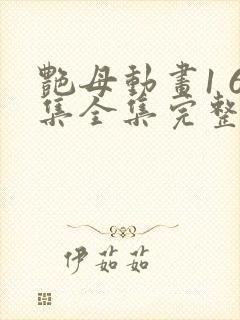 艷母動畫1 6
集全集完整
伊茹茹